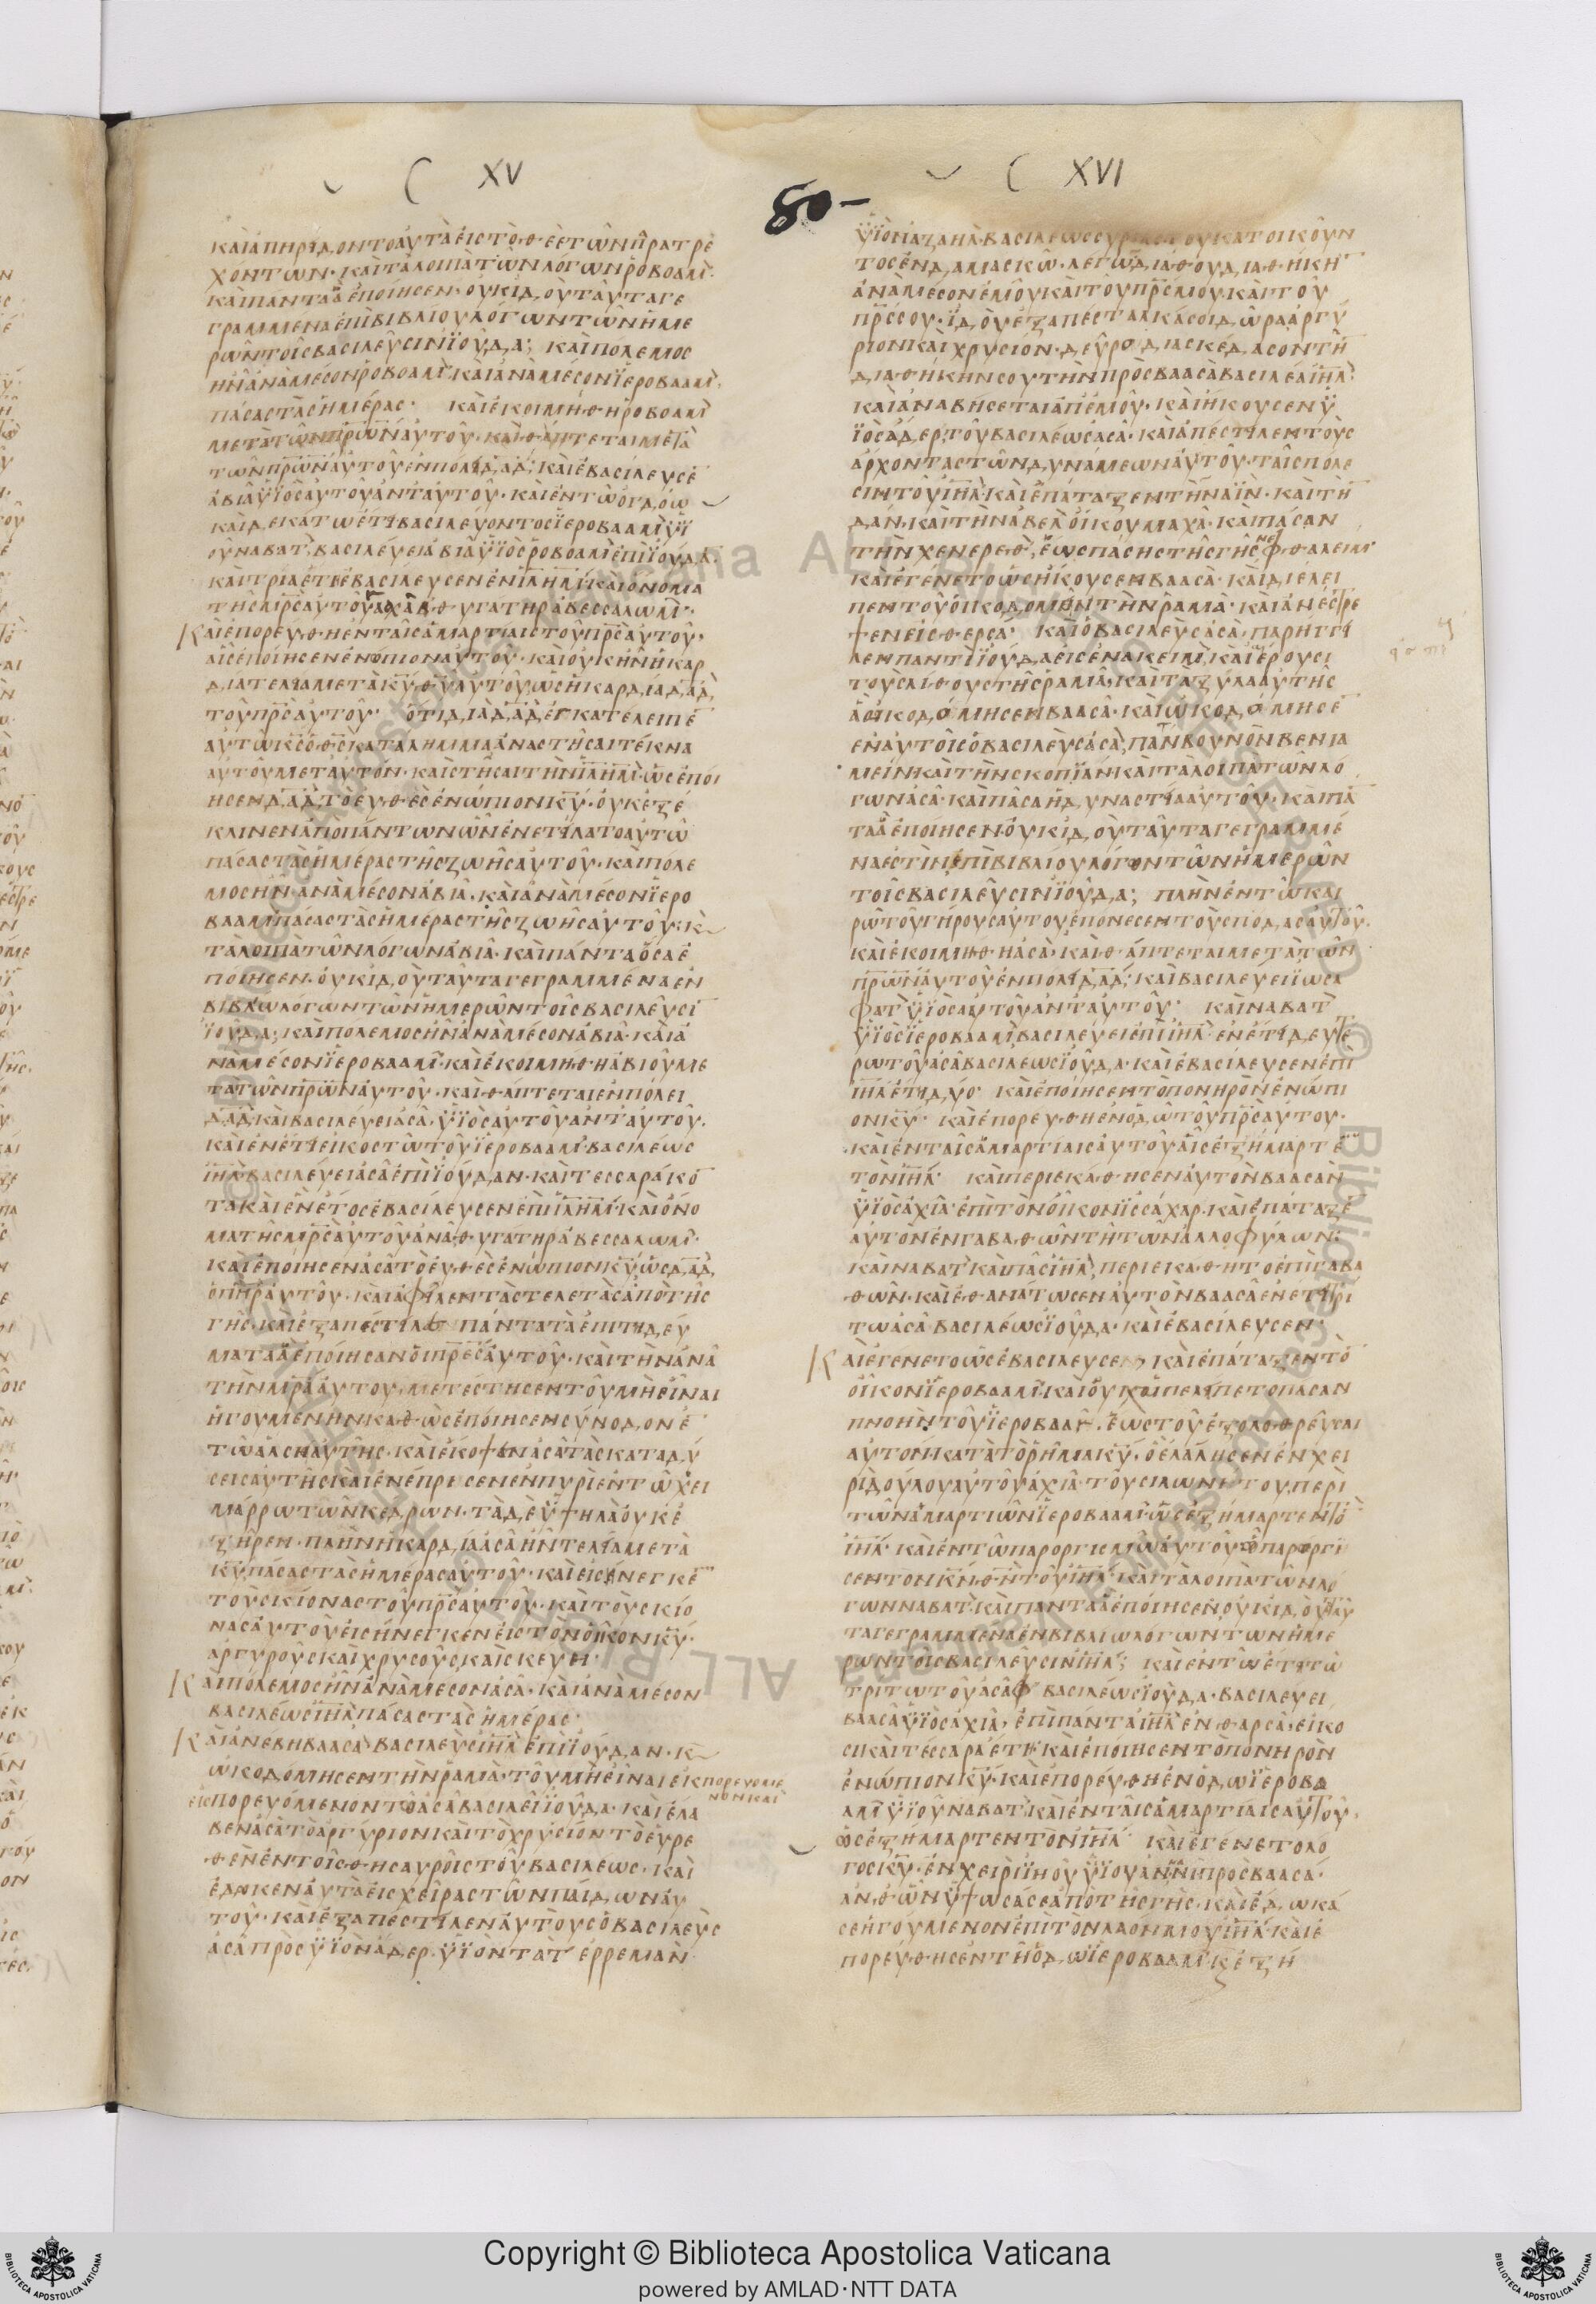 C XV
C XVI
80-
ΚΑΙ ΑΠΗΡΙΔΟΝΤΟ ΑΥΤΑ ΕΙΣ ΤΟ ΘΕΕ ΤΩΝ ΠΑΡΑΤΡΕ
ΧΟΝΤΩΝ· ΚΑΙ ΤΑ ΛΟΙΠΑ ΤΩΝ ΛΟΓΩΝ ΡΟΒΟΑΜ·
ΚΑΙ ΠΑΝΤΑ Α ΕΠΟΙΗΣΕΝ· ΟΥΚ ΙΔΟΥ ΤΑΥΤΑ ΓΕ
ΓΡΑΜΜΕΝΑ ΕΠΙ ΒΙΒΛΙΟΥ ΛΟΓΩΝ ΤΩΝ ΗΜΕ
ΡΩΝ ΤΟΙΣ ΒΑΣΙΛΕΥΣΙΝ ΙΟΥΔΑ; ΚΑΙ ΠΟΛΕΜΟΣ
ΗΝ ΑΝΑ ΜΕΣΟΝ ΡΟΒΟΑΜ ΚΑΙ ΑΝΑ ΜΕΣΟΝ ΙΕΡΟΒΑΑΜ·
ΠΑΣΑΣ ΤΑΣ ΗΜΕΡΑΣ· ΚΑΙ ΕΚΟΙΜΗΘΗ ΡΟΒΟΑΜ
ΜΕΤΑ ΤΩΝ ΠΡΩΝ ΑΥΤΟΥ· ΚΑΙ ΘΑΠΤΕΤΑΙ ΜΕΤΑ
ΤΩΝ ΠΡΩΝ ΑΥΤΟΥ ΕΝ ΠΟΛΙ ΔΑΔ; ΚΑΙ ΕΒΑΣΙΛΕΥΣΕ
ΑΒΙΑ ΥΙΟΣ ΑΥΤΟΥ ΑΝΤ ΑΥΤΟΥ· ΚΑΙ ΕΝ ΤΩ ΟΓΔΟΩ
ΚΑΙ ΔΕΚΑΤΩ ΕΤΙ ΒΑΣΙΛΕΥΟΝΤΟΣ ΙΕΡΟΒΑΑΜ ΥΙ
ΟΥ ΝΑΒΑΤ, ΒΑΣΙΛΕΥΕΙ ΑΒΙΑ ΥΙΟΣ ΡΟΒΟΑΜ ΕΠΙ ΙΟΥΔΑ·
ΚΑΙ ΤΡΙΑ ΕΤΗ ΕΒΑΣΙΛΕΥΣΕΝ ΕΝ ΙΛΗΜ ΚΑΙ ΟΝΟΜΑ
ΤΗΣ ΜΡΣ ΑΥΤΟΥ ΜΑΑΧΑ ΘΥΓΑΤΗΡ ΑΒΕΣΣΑΛΩΜ·
ΚΑΙ ΕΠΟΡΕΥΘΗ ΕΝ ΤΑΙΣ ΑΜΑΡΤΙΑΙΣ ΤΟΥ ΠΡΣ ΑΥΤΟΥ·
ΑΙΣ ΕΠΟΙΗΣΕΝ ΕΝΟΠΙΟΝ ΑΥΤΟΥ· ΚΑΙ ΟΥΚ ΗΝ Η ΚΑΡ
ΔΙΑ ΤΕΛΙΑ ΜΕΤΑ ΚΥ ΘΥ ΑΥΤΟΥ ΩΣ Η ΚΑΡΔΙΑ ΔΑΔ,
ΤΟΥ ΠΡΣ ΑΥΤΟΥ· ΟΤΙ ΔΙΑ ΔΑΔ ΕΓΚΑΤΕΛΕΙΠΕ
ΑΥΤΩ ΚΣ Ο ΘΣ ΚΑΤΑΛΗΜΜΑ ΑΝΑΣΤΗΣΑΙ ΤΕΚΝΑ
ΑΥΤΟΥ ΜΕΤ ΑΥΤΟΝ· ΚΑΙ ΣΤΗΣΑΙ ΤΗΝ ΙΛΗΜ· ΩΣ ΕΠΟΙ
ΗΣΕΝ ΔΑΔ ΤΟ ΕΥΘΕΣ ΕΝΩΠΙΟΝ ΚΥ· ΟΥΚ ΕΞΕ
ΚΛΙΝΕΝ ΑΠΟ ΠΑΝΤΩΝ ΩΝ ΕΝΕΤΙΛΑΤΟ ΑΥΤΩ
ΠΑΣΑΣ ΤΑΣ ΗΜΕΡΑΣ ΤΗΣ ΖΩΗΣ ΑΥΤΟΥ· ΚΑΙ ΠΟΛΕ
ΜΟΣ ΗΝ ΑΝΑ ΜΕΣΟΝ ΑΒΙΑ· ΚΑΙ ΑΝΑ ΜΕΣΟΝ ΙΕΡΟ
ΒΑΑΜ ΠΑΣΑΣ ΤΑΣ ΗΜΕΡΑΣ ΤΗΣ ΖΩΗΣ ΑΥΤΟΥ· Κ
ΤΑ ΛΟΙΠΑ ΤΩΝ ΛΟΓΩΝ ΑΒΙΑ· ΚΑΙ ΠΑΝΤΑ ΟΣΑ Ε
ΠΟΙΗΣΕΝ· ΟΥΚ ΙΔΟΥ ΤΑΥΤΑ ΓΕΓΡΑΜΜΕΝΑ ΕΝ
ΒΙΒΛΩ ΛΟΓΩΝ ΤΩΝ ΗΜΕΡΩΝ ΤΟΙΣ ΒΑΣΙΛΕΥΣΙ
ΙΟΥΔΑ; ΚΑΙ ΠΟΛΕΜΟΣ ΗΝ ΑΝΑ ΜΕΣΟΝ ΑΒΙΑ· ΚΑΙ Α
ΝΑ ΜΕΣΟΝ ΙΕΡΟΒΑΑΜ· ΚΑΙ ΕΚΟΙΜΗΘΗ ΑΒΙΟΥ ΜΕ
ΤΑ ΤΩΝ ΠΡΩΝ ΑΥΤΟΥ· ΚΑΙ ΘΑΠΤΕΤΑΙ ΕΝ ΠΟΛΕΙ
ΔΑΔ ΚΑΙ ΒΑΣΙΛΕΥΕΙ ΑΣΑ ΥΙΟΣ ΑΥΤΟΥ ΑΝΤ ΑΥΤΟΥ·
ΚΑΙ ΕΝ ΕΤΙ ΕΙΚΟΣΤΩ ΤΟΥ ΙΕΡΟΒΑΑΜ ΒΑΣΙΛΕΩΣ
ΙΗΛ ΒΑΣΙΛΕΥΕΙ ΑΣΑ ΕΠΙ ΙΟΥΔΑΝ· ΚΑΙ ΤΕΣΣΑΡΑΚΟ
ΤΑ ΚΑΙ ΕΝ ΕΤΟΣ ΕΒΑΣΙΛΕΥΣΕΝ ΕΠΙ ΙΛΗΜ ΚΑΙ ΟΝΟ
ΜΑ ΤΗΣ ΜΡΣ ΑΥΤΟΥ ΑΝΑ, ΘΥΓΑΤΗΡ ΑΒΕΣΣΑΛΩΜ·
ΚΑΙ ΕΠΟΙΗΣΕΝ ΑΣΑ ΤΟ ΕΥΘΕΣ ΕΝΩΠΙΟΝ ΚΥ ΩΣ ΔΑΔ,
Ο ΠΗΡ ΑΥΤΟΥ· ΚΑΙ ΑΦΙΛΕΝ ΤΑΣ ΤΕΛΕΤΑΣ ΑΠΟ ΤΗΣ
ΓΗΣ· ΚΑΙ ΕΞΑΠΕΣΤΙΛΕ ΠΑΝΤΑ ΤΑ ΕΠΙΤΗΔΕΥ
ΜΑΤΑ Α ΕΠΟΙΗΣΑΝ ΟΙ ΠΡΕΣ ΑΥΤΟΥ· ΚΑΙ ΤΗΝ ΑΝΑ
ΤΗΝ ΜΡΑ ΑΥΤΟΥ ΜΕΤΕΣΤΗΣΕΝ ΤΟΥ ΜΗ ΕΙΝΑΙ
ΗΓΟΥΜΕΝΗΝ ΚΑΘΩΣ ΕΠΟΙΗΣΕΝ ΣΥΝΟΔΟΝ Ε
ΤΩ ΑΛΣΙ ΑΥΤΗΣ· ΚΑΙ ΕΚΟΨΕΝ ΑΣΑ ΤΑΣ ΚΑΤΑΔΥ
ΣΕΙΣ ΑΥΤΗΣ ΚΑΙ ΕΝΕΠΡΗΣΕΝ ΕΝ ΠΥΡΙ ΕΝ ΤΩ ΧΕΙ
ΜΑΡΡΩ ΤΩΝ ΚΕΔΡΩΝ· ΤΑ ΔΕ ΥΨΗΛΑ ΟΥΚ Ε
ΞΗΡΕΝ· ΠΛΗΝ Η ΚΑΡΔΙΑ ΑΣΑ ΗΝ ΤΕΛΙΑ ΜΕΤΑ
ΚΥ ΠΑΣΑΣ ΤΑΣ ΗΜΕΡΑΣ ΑΥΤΟΥ· ΚΑΙ ΕΙΣΗΝΕΓΚΕ
ΤΟΥΣ ΚΙΟΝΑΣ ΤΟΥ ΠΡΣ ΑΥΤΟΥ· ΚΑΙ ΤΟΥΣ ΚΙΟ
ΝΑΣ ΑΥΤΟΥ ΕΙΣΗΝΕΓΚΕΝ ΕΙΣ ΤΟΝ ΟΙΚΟΝ ΚΥ·
ΑΡΓΥΡΟΥΣ ΚΑΙ ΧΡΥΣΟΥΣ, ΚΑΙ ΣΚΕΥΗ·
ΚΑΙ ΠΟΛΕΜΟΣ ΗΝ ΑΝΑ ΜΕΣΟΝ ΑΣΑ· ΚΑΙ ΑΝΑ ΜΕΣΟΝ
ΒΑΣΙΛΕΩΣ ΙΗΛ ΠΑΣΑΣ ΤΑΣ ΗΜΕΡΑΣ·
ΚΑΙ ΑΝΕΒΗ ΒΑΑΣΑ ΒΑΣΙΛΕΥΣ ΙΗΛ ΕΠΙ ΙΟΥΔΑΝ· Κ
ΩΚΟΔΟΜΗΣΕΝ ΤΗΝ ΡΑΜΑ· ΤΟΥ ΜΗ ΕΙΝΑΙ ΕΚΠΟΡΕΥΟΜΕ
ΝΟΝ ΚΑΙ
ΕΙΣΠΟΡΕΥΟΜΕΝΟΝ ΤΩ ΑΣΑ ΒΑΣΙΛΕΙ ΙΟΥΔΑ· ΚΑΙ ΕΛΑ
ΒΕΝ ΑΣΑ ΤΟ ΑΡΓΥΡΙΟΝ ΚΑΙ ΤΟ ΧΡΥΣΙΟΝ ΤΟ ΕΥΡΕ
ΘΕΝ ΕΝ ΤΟΙΣ ΘΗΣΑΥΡΟΙΣ ΤΟΥ ΒΑΣΙΛΕΩΣ· ΚΑΙ
ΕΔΩΚΕΝ ΑΥΤΑ ΕΙΣ ΧΕΙΡΑΣ ΤΩΝ ΠΑΙΔΩΝ ΑΥ
ΤΟΥ· ΚΑΙ ΕΞΑΠΕΣΤΙΛΕΝ ΑΥΤΟΥΣ Ο ΒΑΣΙΛΕΥΣ
ΑΣΑ ΠΡΟΣ ΥΙΟΝ ΑΔΕΡ· ΥΙΟΝ ΤΑΤ ΕΡΡΕΜΑΝ·
ΥΙΟΝ ΑΖΑΗΛ· ΒΑΣΙΛΕΩΣ ΣΥΡΙΑΣ ΤΟΥ ΚΑΤΟΙΚΟΥΝ
ΤΟΣ ΕΝ ΔΑΜΑΣΚΩ· ΛΕΓΩ ΔΙΑΘΟΥ ΔΙΑΘΗΚΗ
ΑΝΑ ΜΕΣΟΝ ΕΜΟΥ ΚΑΙ ΤΟΥ ΠΡΣ ΜΟΥ ΚΑΙ ΤΟΥ
ΠΡΣ ΣΟΥ· ΙΔΟΥ ΕΞΑΠΕΣΤΑΛΚΑ ΣΟΙ ΔΩΡΑ ΑΡΓΥ
ΡΙΟΝ ΚΑΙ ΧΡΥΣΙΟΝ· ΔΕΥΡΟ ΔΙΑΣΚΕΔΑΣΟΝ ΤΗ
ΔΙΑΘΗΚΗΝ ΣΟΥ ΤΗΝ ΠΡΟΣ ΒΑΑΣΑ ΒΑΣΙΛΕΑ ΙΗΛ·
ΚΑΙ ΑΝΑΒΗΣΕΤΑΙ ΑΠ ΕΜΟΥ· ΚΑΙ ΗΚΟΥΣΕΝ Υ
ΙΟΣ ΑΔΕΡ, ΤΟΥ ΒΑΣΙΛΕΩΣ ΑΣΑ· ΚΑΙ ΑΠΕΣΤΙΛΕΝ ΤΟΥΣ
ΑΡΧΟΝΤΑΣ ΤΩΝ ΔΥΝΑΜΕΩΝ ΑΥΤΟΥ· ΤΑΙΣ ΠΟΛΕ
ΣΙΝ ΤΟΥ ΙΗΛ· ΚΑΙ ΕΠΑΤΑΞΕΝ ΤΗΝ ΑΙΝ· ΚΑΙ ΤΗ
ΔΑΝ· ΚΑΙ ΤΗΝ ΑΒΕΛ ΟΙΚΟΥ ΜΑΧΑ· ΚΑΙ ΠΑΣΑΝ
ΤΗΝ ΧΕΝΕΡΕΘ, ΕΩΣ ΠΑΣΗΣ ΤΗΣ ΓΗΣ ΝΕΦΘΑΛΕΙΜ
ΚΑΙ ΕΓΕΝΕΤΟ ΩΣ ΗΚΟΥΣΕΝ ΒΑΑΣΑ· ΚΑΙ ΔΙΕΛΕΙ
ΠΕΝ ΤΟΥ ΟΙΚΟΔΟΜΕΙΝ ΤΗΝ ΡΑΜΑ· ΚΑΙ ΑΝΕΣΤΡΕ
ΨΕΝ ΕΙΣ ΘΕΡΣΑ· ΚΑΙ Ο ΒΑΣΙΛΕΥΣ ΑΣΑ· ΠΑΡΗΓΓΙ
ΛΕΝ ΠΑΝΤΙ ΙΟΥΔΑ ΕΙΣ ΕΝΑΚΕΙΜ, ΚΑΙ ΑΙΡΟΥΣΙ
ΤΟΥΣ ΛΙΘΟΥΣ ΤΗΣ ΡΑΜΑ, ΚΑΙ ΤΑ ΞΥΛΑ ΑΥΤΗΣ
Α ΟΙΚΟΔΟΜΗΣΕΝ ΒΑΑΣΑ· ΚΑΙ ΩΚΟΔΟΜΗΣΕ
ΕΝ ΑΥΤΟΙΣ Ο ΒΑΣΙΛΕΥΣ ΑΣΑ, ΠΑΝ ΒΟΥΝΟΝ ΒΕΝΙΑ
ΜΕΙΝ ΚΑΙ ΤΗΝ ΣΚΟΠΙΑΝ· ΚΑΙ ΤΑ ΛΟΙΠΑ ΤΩΝ ΛΟ
ΓΩΝ ΑΣΑ· ΚΑΙ ΠΑΣΑ Η ΔΥΝΑΣΤΙΑ ΑΥΤΟΥ· ΚΑΙ ΠΑ
ΤΑ Α ΕΠΟΙΗΣΕΝ· ΟΥΚ ΙΔΟΥ ΤΑΥΤΑ ΓΕΓΡΑΜΜΕ
ΝΑ ΕΣΤΙΝ ΕΠΙ ΒΙΒΛΙΟΥ ΛΟΓΩΝ ΤΩΝ ΗΜΕΡΩΝ
ΤΟΙΣ ΒΑΣΙΛΕΥΣΙΝ ΙΟΥΔΑ; ΠΛΗΝ ΕΝ ΤΩ ΚΑΙ
ΡΩ ΤΟΥ ΓΗΡΟΥΣ ΑΥΤΟΥ ΕΠΟΝΕΣΕΝ ΤΟΥΣ ΠΟΔΑΣ ΑΥΤΟΥ·
ΚΑΙ ΕΚΟΙΜΗΘΗ ΑΣΑ· ΚΑΙ ΘΑΠΤΕΤΑΙ ΜΕΤΑ ΤΩΝ
ΠΡΩΝ ΑΥΤΟΥ ΕΝ ΠΟΛΙ ΔΑΔ; ΚΑΙ ΒΑΣΙΛΕΥΕΙ ΙΩΣΑ
ΦΑΤ ΥΙΟΣ ΑΥΤΟΥ ΑΝΤ ΑΥΤΟΥ· ΚΑΙ ΝΑΒΑΤ
ΥΙΟΣ ΙΕΡΟΒΑΑΜ ΒΑΣΙΛΕΥΕΙ ΕΠΙ ΙΗΛ· ΕΝ ΕΤΙ ΔΕΥΤΕ
ΡΩ ΤΟΥ ΑΣΑ ΒΑΣΙΛΕΩΣ ΙΟΥΔΑ· ΚΑΙ ΕΒΑΣΙΛΕΥΣΕΝ ΕΠΙ
ΙΗΛ ΕΤΗ ΔΥΟ· ΚΑΙ ΕΠΟΙΗΣΕΝ ΤΟ ΠΟΝΗΡΟΝ ΕΝΩΠΙ
ΟΝ ΚΥ· ΚΑΙ ΕΠΟΡΕΥΘΗ ΕΝ ΟΔΩ ΤΟΥ ΠΡΣ ΑΥΤΟΥ·
ΚΑΙ ΕΝ ΤΑΙΣ ΑΜΑΡΤΙΑΙΣ ΑΥΤΟΥ ΑΙΣ ΕΞΗΜΑΡΤΕ
ΤΟΝ ΙΗΛ· ΚΑΙ ΠΕΡΙΕΚΑΘΗΣΕΝ ΑΥΤΟΝ ΒΑΑΣΑΝ
ΥΙΟΣ ΑΧΙΑ· ΕΠΙ ΤΟΝ ΟΙΚΟΝ ΙΣΣΑΧΑΡ· ΚΑΙ ΕΠΑΤΑΞΕ
ΑΥΤΟΝ ΕΝ ΓΑΒΑΘΩΝ ΤΗ ΤΩΝ ΑΛΛΟΦΥΛΩΝ·
ΚΑΙ ΝΑΒΑΤ ΚΑΙ ΠΑΣ ΙΗΛ, ΠΕΡΙΕΚΑΘΗΤΟ ΕΠΙ ΓΑΒΑ
ΘΩΝ· ΚΑΙ ΕΘΑΝΑΤΩΣΕΝ ΑΥΤΟΝ ΒΑΑΣΑ ΕΝ ΕΤΙ ΤΡΙ
ΤΩ ΑΣΑ ΒΑΣΙΛΕΩΣ ΙΟΥΔΑ· ΚΑΙ ΕΒΑΣΙΛΕΥΣΕΝ·
ΚΑΙ ΕΓΕΝΕΤΟ ΩΣ ΕΒΑΣΙΛΕΥΣΕΝ ΚΑΙ ΕΠΑΤΑΞΕΝ ΤΟ
ΟΙΚΟΝ ΙΕΡΟΒΑΑΜ· ΚΑΙ ΟΥΧ ΥΠΕΛΙΠΕΤΟ ΠΑΣΑΝ
ΠΝΟΗΝ ΤΟΥ ΙΕΡΟΒΑΑΜ· ΕΩΣ ΤΟΥ ΕΞΟΛΟΘΡΕΥΣΑΙ
ΑΥΤΟΝ ΚΑΤΑ ΤΟ ΡΗΜΑ ΚΥ· Ο ΕΛΑΛΗΣΕΝ ΕΝ ΧΕΙ
ΡΙ ΔΟΥΛΟΥ ΑΥΤΟΥ ΑΧΙΑ· ΤΟΥ ΣΙΛΩΝΙΤΟΥ, ΠΕΡΙ
ΤΩΝ ΑΜΑΡΤΙΩΝ ΙΕΡΟΒΑΑΜ· ΩΣ ΕΞΗΜΑΡΤΕΝ ΤΟ
ΙΗΛ· ΚΑΙ ΕΝ ΤΩ ΠΑΡΟΡΓΙΣΜΩ ΑΥΤΟΥ Ω ΠΑΡΟΡΓΙ
ΣΕΝ ΤΟΝ ΚΝ ΘΝ ΤΟΥ ΙΗΛ· ΚΑΙ ΤΑ ΛΟΙΠΑ ΤΩΝ ΛΟ
ΓΩΝ ΝΑΒΑΤ· ΚΑΙ ΠΑΝΤΑ Α ΕΠΟΙΗΣΕΝ· ΟΥΚ ΙΔΟΥ ΤΑΥ
ΤΑ ΓΕΓΡΑΜΜΕΝΑ ΕΝ ΒΙΒΛΙΩ ΛΟΓΩΝ ΤΩΝ ΗΜΕ
ΡΩΝ ΤΟΙΣ ΒΑΣΙΛΕΥΣΙΝ ΙΗΛ; ΚΑΙ ΕΝ ΤΩ ΕΤΙ ΤΩ
ΤΡΙΤΩ ΤΟΥ ΑΣΑ ΒΑΣΙΛΕΩΣ ΙΟΥΔΑ· ΒΑΣΙΛΕΥΕΙ
ΒΑΑΣΑ ΥΙΟΣ ΑΧΙΑ, ΕΠΙ ΠΑΝΤΑ ΙΗΛ ΕΝ ΘΑΡΣΑ, ΕΙΚΟ
ΣΙ ΚΑΙ ΤΕΣΣΑΡΑ ΕΤΗ· ΚΑΙ ΕΠΟΙΗΣΕΝ ΤΟ ΠΟΝΗΡΟΝ
ΕΝΩΠΙΟΝ ΚΥ· ΚΑΙ ΕΠΟΡΕΥΘΗ ΕΝ ΟΔΩ ΙΕΡΟΒΑ
ΑΜ ΥΙΟΥ ΝΑΒΑΤ· ΚΑΙ ΕΝ ΤΑΙΣ ΑΜΑΡΤΙΑΙΣ ΑΥΤΟΥ·
ΩΣ ΕΞΗΜΑΡΤΕΝ ΤΟΝ ΙΗΛ· ΚΑΙ ΕΓΕΝΕΤΟ ΛΟ
ΓΟΣ ΚΥ· ΕΝ ΧΕΙΡΙ ΙΗΟΥ ΥΙΟΥ ΑΝΑΝΙ ΠΡΟΣ ΒΑΑΣΑ·
ΑΝΘ ΩΝ ΥΨΩΣΑ ΣΕ ΑΠΟ ΤΗΣ ΓΗΣ· ΚΑΙ ΕΔΩΚΑ
ΣΕ ΗΓΟΥΜΕΝΟΝ ΕΠΙ ΤΟΝ ΛΑΟΝ ΜΟΥ ΙΗΛ· ΚΑΙ Ε
ΠΟΡΕΥΘΗΣ ΕΝ ΤΗ ΟΔΩ ΙΕΡΟΒΑΑΜ· Κ ΕΞΗ
Copyright © Biblioteca Apostolica Vaticana
powered by AMLAD·NTT DATA